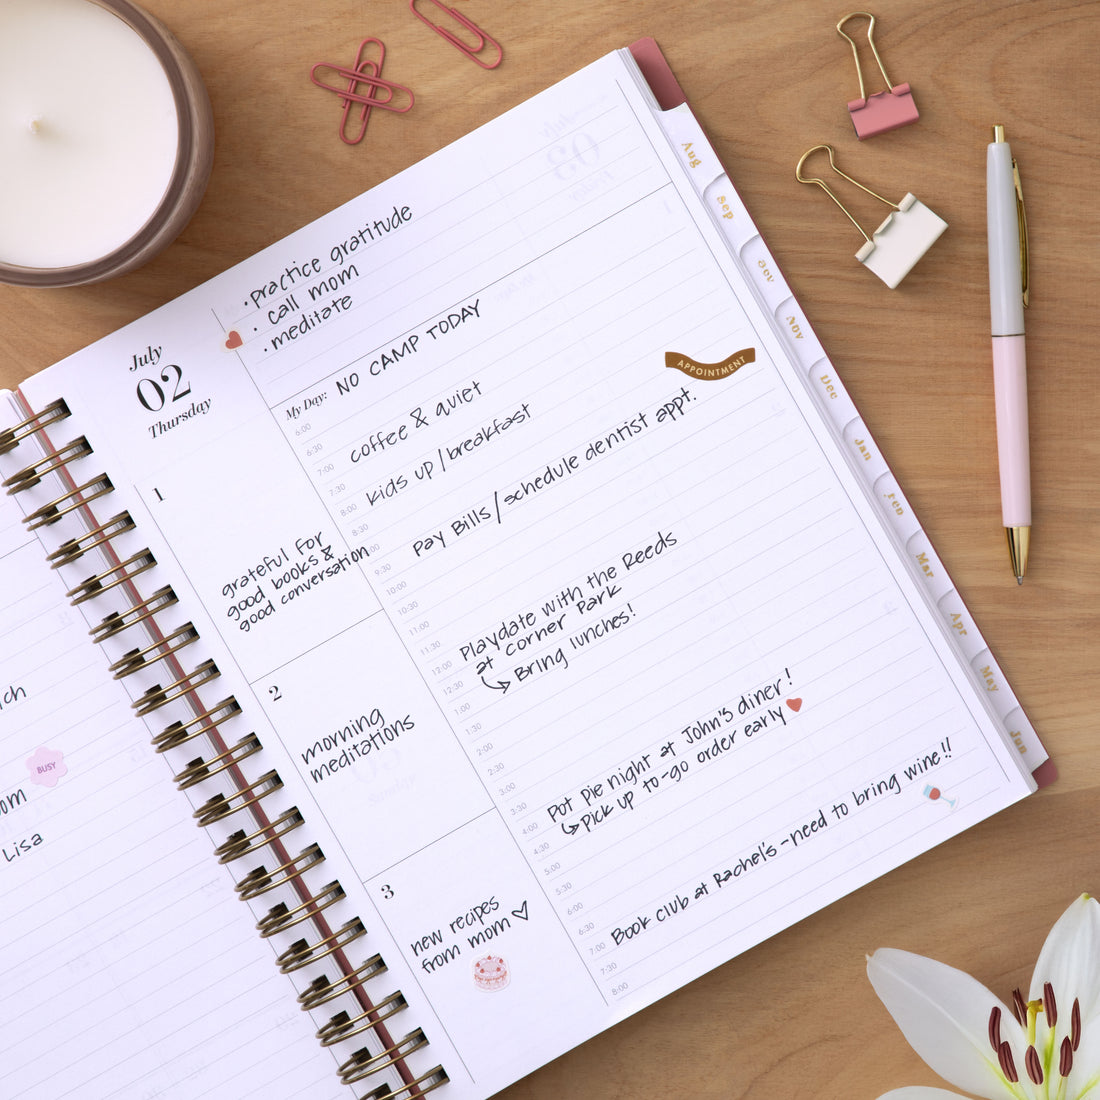 July
02
Thursday
· practice gratitude
· call mom
· meditate
My Day: NO CAMP TODAY
APPOINTMENT
6:00
6:30
7:00 coffee & quiet
7:30
8:00 kids up / breakfast
8:30
9:30 Pay Bills / schedule dentist appt.
10:00
10:30
11:00
11:30
12:00 Playdate with the Reeds
at corner Park
12:30 Bring lunches!
1:00
1:30
2:00
2:30
3:00
3:30
4:00 Pot pie night at John's diner!
4:30 Pick up to-go order early
5:00
5:30
6:00
6:30
7:00 Book club at Rachel's - need to bring wine!!
7:30
8:00
1
grateful for
good books &
good conversation
2
morning
meditations
3
new recipes
from mom
BUSY
Lisa
Aug
Sep
Oct
Nov
Dec
Jan
Feb
Mar
Apr
May
Jun